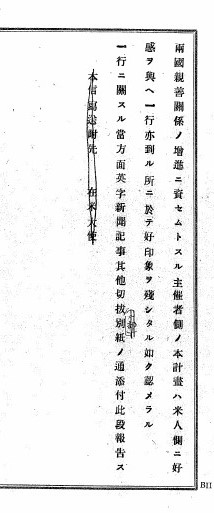 兩國親善關係ノ增進ニ資セムトスル主催者側ノ本計畫ハ米人側ニ好
感ヲ與ヘ一行亦到ル所ニ於テ好印象ヲ殘シタル如ク認メラル
一行ニ關スル當方面英字新聞記事其他切拔別紙ノ通添付此段報告ス
本信寫送付先 在米大使
BII